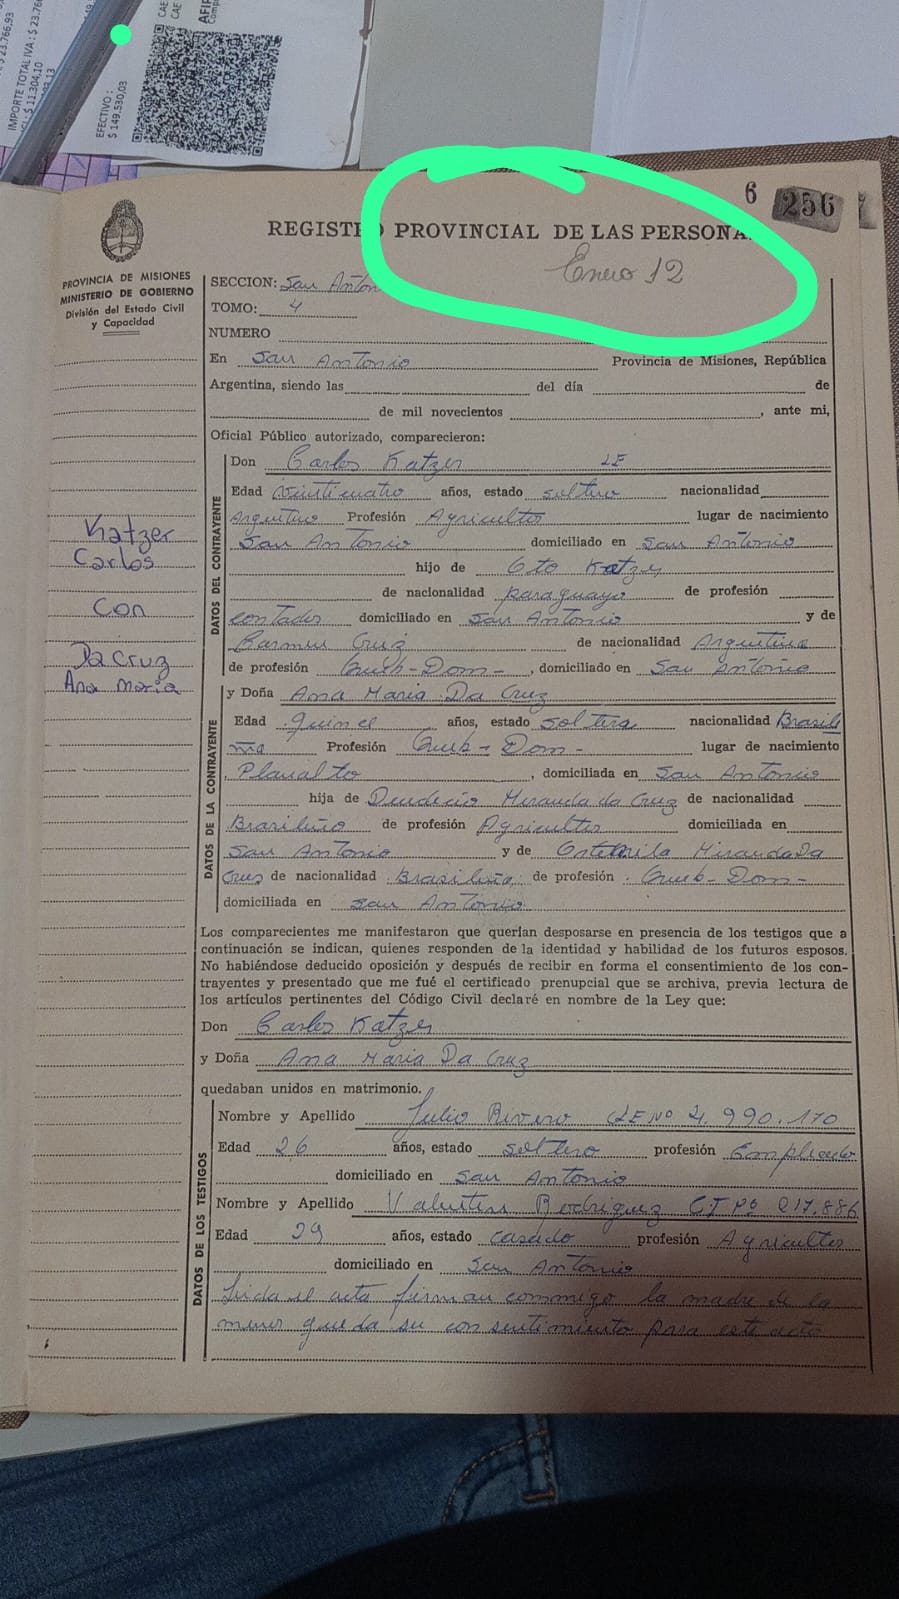 $ 23.766,93
IMPORTE TOTAL IVA : $ 23.766
$ 11.304,10
EFECTIVO :
$ 149.530,03
CAE
CAE
AFIP
Comp
6 256
REGISTR PROVINCIAL DE LAS PERSONA
Enero 12
PROVINCIA DE MISIONES
MINISTERIO DE GOBIERNO
División del Estado Civil
y Capacidad
SECCION: San Anton
TOMO: 4
NUMERO
En San Antonio Provincia de Misiones, República
Argentina, siendo las del día de
de mil novecientos , ante mi,
Oficial Público autorizado, comparecieron:
DATOS DEL CONTRAYENTE
Don Carlos Katzer LE
Edad veinticuatro años, estado soltero nacionalidad
Argentino Profesión Agricultor lugar de nacimiento
San Antonio domiciliado en San Antonio
hijo de Otto Katzer
de nacionalidad paraguayo de profesión
contador domiciliado en San Antonio y de
Carmen Cruz de nacionalidad Argentina
de profesión Queh-Dom- , domiciliado en San Antonio
Katzer
Carlos
Con
Da Cruz
Ana Maria
DATOS DE LA CONTRAYENTE
y Doña Ana Maria Da Cruz
Edad quince años, estado soltera nacionalidad Brasile
ña Profesión Queh-Dom- lugar de nacimiento
Planalto , domiciliada en San Antonio
hija de Miranda da Cruz de nacionalidad
Brasileño de profesión Agricultor domiciliada en
San Antonio y de Miranda Da
Cruz de nacionalidad Brasileña de profesión Queh-Dom-
domiciliada en San Antonio
Los comparecientes me manifestaron que querían desposarse en presencia de los testigos que a
continuación se indican, quienes responden de la identidad y habilidad de los futuros esposos.
No habiéndose deducido oposición y después de recibir en forma el consentimiento de los con-
trayentes y presentado que me fué el certificado prenupcial que se archiva, previa lectura de
los artículos pertinentes del Código Civil declaré en nombre de la Ley que:
Don Carlos Katzer
y Doña Ana Maria Da Cruz
quedaban unidos en matrimonio.
DATOS DE LOS TESTIGOS
Nombre y Apellido Julio Rivero LE Nº 4.990.170
Edad 26 años, estado soltero profesión Empleado
domiciliado en San Antonio
Nombre y Apellido Valentin Rodriguez C.I Nº 217.886
Edad 29 años, estado casado profesión Agricultor
domiciliado en San Antonio
Leida el acta firman conmmigo la madre de la
menor que da su consentimiento para este acto